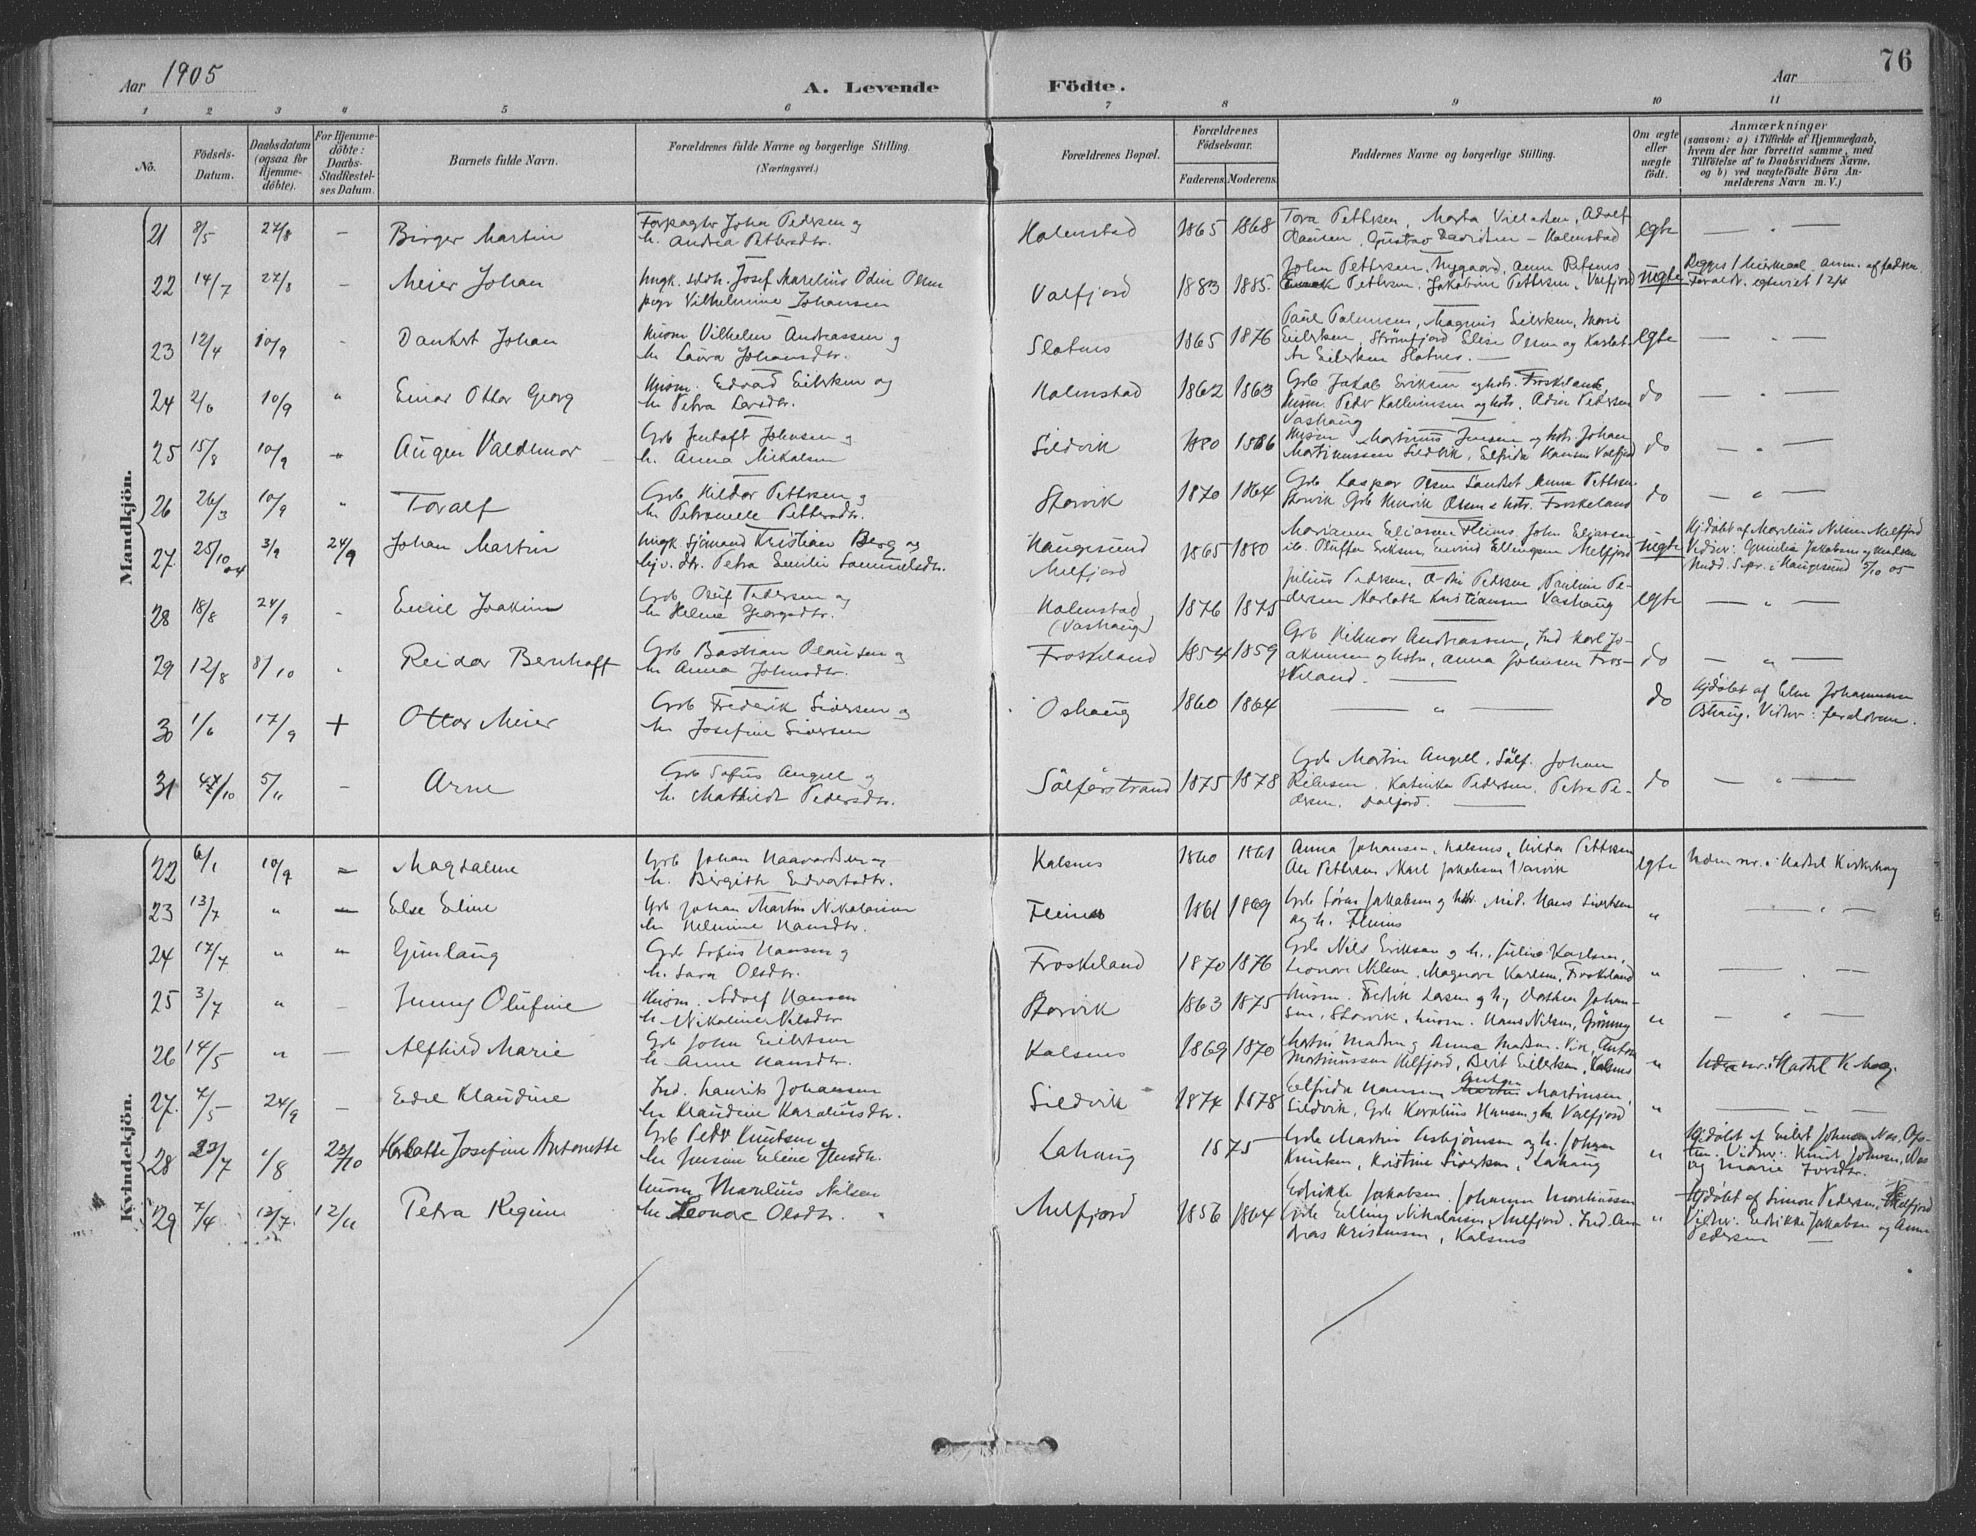 76
Aar 1905 A. Levende Födte. Aar
1 2 3 4 5 6 7 8 9 10 11
No. Födsels-Datum. Daabsdatum (ogsaa for Hjemmedöbte). For Hjemmedöbte: Daabs-Stadfæstelses Datum. Barnets fulde Navn. Forældrenes fulde Navne og borgerlige Stilling. (Næringsvei.) Forældrenes Bopæl. Forældrenes Födselsaar. Faderens. Moderens. Faddernes Navne og borgerlige Stilling. Om ægte eller uægte födt. Anmærkninger
(saasom: a) i Tilfælde af Hjemmedaab, hvem der har forrettet samme, med Tilföielse af to Daabsvidners Navne, og b) ved uægtefödte Börn Anmelderens Navn m. V.)
Mandkjön.
21 8/5 27/8 – Birger Martin Forpagter Johan Pedersen og
h. Andrea Pettersdtr. Halmstad 1865 1868 Tora Pettersen, Marta Villadsen, Adolf
Hansen, Gustav Davidsen – Halmstad egte — " —
22 14/7 27/8 – Meier Johan Ungk. Josef Marelius Odin Olsen
pige Vilhelmine Johansen Valfjord 1883 1885 John Pettersen, Nygaard, Anna
Pettersen, Jakobine Pettersen, Valfjord uegte
23 12/4 10/9 – Dankert Johan Husm Vilhelm Andreassen og
h. Laura Johansdtr. Slotnes 1865 1876 Magnus Eilertsen,
Eilertsen, Strømfjord Elise Olsen og
Eilertsen Slotnes. — egte — " —
24 2/6 10/9 " Einar Ottar Georg Husm. Edvard Eilertsen og
h. Petra Larsdtr. Halmstad 1862 1863 Grb Jakob Eriksen og hstr. Froskeland,
Husm. Peder og hstr. Pedersen
Vashaug do — " —
25 15/8 10/9 " Augen Valdemar Grb Jentoft Johnsen og
h. Anna Mikalsen Sildvik 1880 1886 Husm Martinus Jensen og hstr. Johan
Martinussen Sildvik, Elfrida Hansen Valfjord do — " —
26 26/3 10/9 " Toralf Grb Hildor Pettersen og
h. Petronelle Pettersdtr. Storvik 1870 1864 Grb Kaspar Olsen Anna Pettersen
Storvik Grb Henrik Olsen & hstr. Froskeland do — " —
27. 25/10 04 3/9 24/9 Johan Martin Ungk Sjømand Kristian Berg og
Petra Emilie Samuelsdtr. Haugesund
Melfjord 1865 1880 Eliassen Fleines, John Eliassen
ib. Oluffa Eriksen, Eivind Ellingsen Melfjord uegte Hjdøbt af Marelius Nilsen Melfjord
Vidner: Jakobsen og
i Haugesund 5/10 05
28 18/8 24/9 – Emil Joakim Grb Oluf Pedersen og
h. Helene Georgsdtr. Halmstad
(Vashaug) 1876 1875 Julius Pedersen, Pedersen Pauline Pedersen
Kristiansen Vashaug egte — " —
29 12/8 8/10 – Reidar Bernhoft Grb Bastian Olausen og
h. Anna Johnsdtr. Froskeland 1854 1859 Grb Hilmar Andreassen, Ind Karl Joakimsen
og hstr, Anna Johnsen Froskeland. — do — " —
30 1/6 17/9 + Ottar Meier Grb Frederik Sivertsen og
h. Josefine Sivertsen Oshaug 1860 1864 — " — do Hjdøbt af Johannesen
Oshaug. Vidner: forældrene.
31 27/10 5/11 – Arne Grb Sofus Angell og
h. Mathilde Pedersdtr. Sölfarstrand 1875 1878 Grb Martin Angell, Sölf. Johan
Katinka Pedersen. Petra Pedersen.
Valfjord. — do — " —
Kvindekjön.
22 6/1 10/9 – Magdalene Grb Johan Haavardsen og
h. Birgith Edvardsdtr. Kalsnes 1860 1861 Anna Johansen, Kalsnes, Hilda Pettersen
Pettersen Karl Jakobsen Varvik egte i Hadsel Kirkebog
23 13/7 " – Else Eline Grb Johan Martin Nikolaisen
h. Helmine Hansdtr. Fleines 1861 1869 Grb Søren Jakobsen og hstr. Hans Sivertsen
og h. Fleines " — " —
24 17/7 " " Gunlaug Grb Sofus Hansen og
h. Sara Olsdtr. Froskeland 1870 1876 Grb Nils Eriksen og h., Julie Karlsen,
Leonore Nilsen, Magnore Karlsen, Froskeland " — " —
25 3/7 " – Jenny Olufine Husm. Adolf Hansen
h. Nikoline Nilsdtr Storvik 1863 1875 Husm. Fredrik Larsen og h, Dorthea Johansen,
Storvik, husm. Hans Nilsen, Grønning " — " —
26 14/5 " – Alfhild Marie Grb John Eilertsen
h. Anne Hansdtr. Kalsnes 1869 1870 Martin Madsen og Anna Madsen. Vik, Anton
Martinussen Melfjord, Berit Eilertsen, Kalsnes " i Hadsel K.bog
27. 7/5 24/9 – Edel Klaudine Ind. Laurits Johansen
h. Klaudine Karoliusdtr. Sildvik 1874 1878 Elfrida Hansen Anton Martinsen,
Sildvik, Grb Karolius Hansen Valfjord " — " —
28 23/7 1/8 22/10 Karlotte Josefine Antonette Grb Peder Knutsen og
h. Jensine Eline Jensdtr. Lahaug 1875 Grb Martin Asbjørnsen og h. Johan
Knutsen, Kristine Sivertsen, Lahaug " Hjdøbt af Eilert Johnsen Nas,
Vidner: Knut Johnsen, Nas
og Marie
29 7/4 13/7 12/11 Petra Regine Husm Marelius Nilsen
h. Leonore Olsdtr. Melfjord 1856 1864 Edrikke Jakobsen. Johanna Martinussen
Grb Elling Nikolaisen Melfjord. Ind. Andreas
Kristensen, Kalsnes " Hjdøbt af Simon Pedersen, Melfjord
Vidner: Edrikke Jakobsen og Anna
Pedersen —